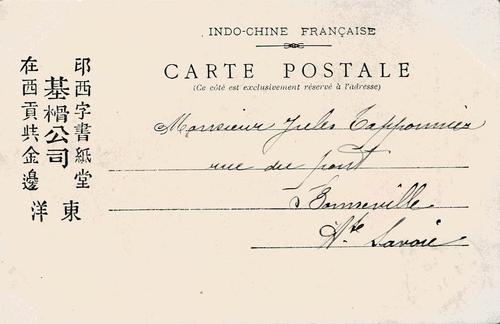 INDO-CHINE FRANÇAISE
CARTE POSTALE
(Ce côté est exclusivement réservé à l'adresse)
Monsieur Jules Tapponnier
rue du pont
à Bonneville
Hte Savoie
印西字書紙堂
基楈公司
在西貢㳟金邊
東洋